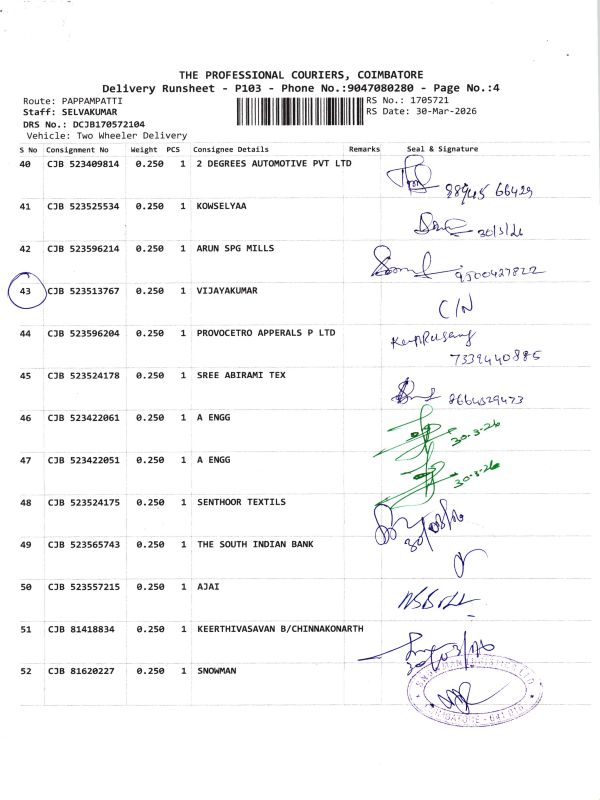 THE PROFESSIONAL COURIERS, COIMBATORE
Delivery Runsheet - P103 - Phone No.:9047080280 - Page No.:4
Route: PAPPAMPATTI
RS No.: 1705721
Staff: SELVAKUMAR
RS Date: 30-Mar-2026
DRS No.: DCJB170572104
Vehicle: Two Wheeler Delivery
S No Consignment No Weight PCS Consignee Details Remarks Seal & Signature
40 CJB 523409814 0.250 1 2 DEGREES AUTOMOTIVE PVT LTD
88945 66429
41 CJB 523525534 0.250 1 KOWSELYAA
30/3/26
42 CJB 523596214 0.250 1 ARUN SPG MILLS
9500427822
43 CJB 523513767 0.250 1 VIJAYAKUMAR
C/N
44 CJB 523596204 0.250 1 PROVOCETRO APPERALS P LTD
7339440885
45 CJB 523524178 0.250 1 SREE ABIRAMI TEX
8664529473
46 CJB 523422061 0.250 1 A ENGG
30-3-26
47 CJB 523422051 0.250 1 A ENGG
30-3-26
48 CJB 523524175 0.250 1 SENTHOOR TEXTILS
30/03/26
49 CJB 523565743 0.250 1 THE SOUTH INDIAN BANK
50 CJB 523557215 0.250 1 AJAI
51 CJB 81418834 0.250 1 KEERTHIVASAVAN B/CHINNAKONARTH
30/03/26
52 CJB 81620227 0.250 1 SNOWMAN